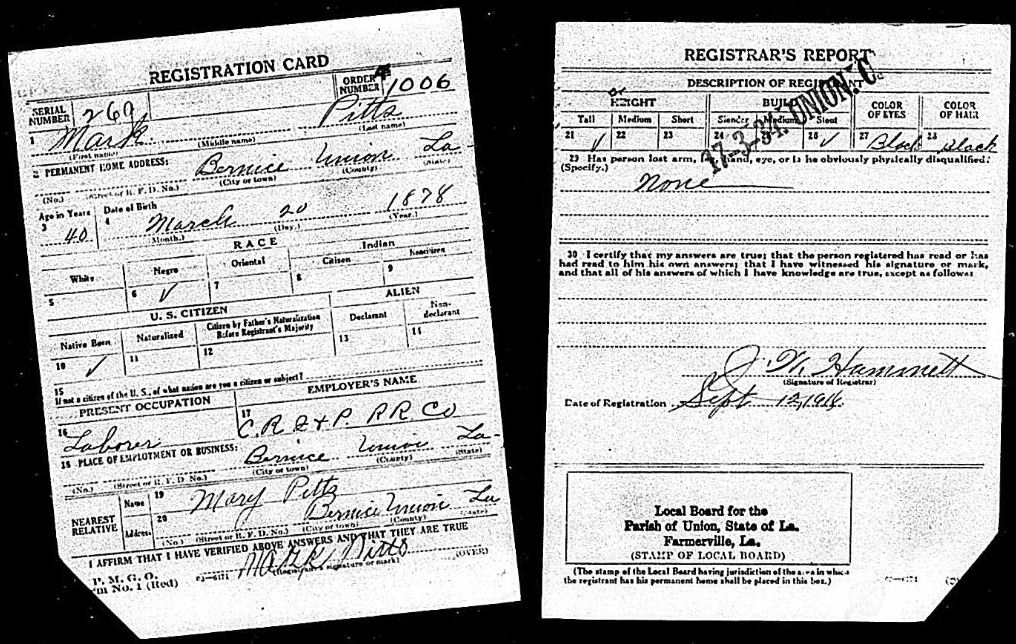 REGISTRATION CARD
SERIAL NUMBER 269
ORDER NUMBER A 1006
1 Mark Pitts
(First name) (Middle name) (Last name)
2 PERMANENT HOME ADDRESS:
Bernice Union La-
(No.) (Street or R. F. D. No.) (City or town) (County) (State)
Age in Years Date of Birth
3 40 4 March 20 1878
(Month.) (Day.) (Year.)
RACE
White Negro Oriental Indian
Citizen Noncitizen
5 6 ✓ 7 8 9
U. S. CITIZEN ALIEN
Native Born Naturalized Citizen by Father's Naturalization Before Registrant's Majority Declarant Non-declarant
10 ✓ 11 12 13 14
15 If not a citizen of the U. S., of what nation are you a citizen or subject?
PRESENT OCCUPATION EMPLOYER'S NAME
16 Laborer 17 C. R. I & P. RR. Co
18 PLACE OF EMPLOYMENT OR BUSINESS:
Bernice Union La-
(No.) (Street or R. F. D. No.) (City or town) (County) (State)
NEAREST RELATIVE Name 19 Mary Pitts
Address 20 Bernice Union La
(No.) (Street or R. F. D. No.) (City or town) (County) (State)
I AFFIRM THAT I HAVE VERIFIED ABOVE ANSWERS AND THAT THEY ARE TRUE
P. M. G. O.
Form No. 1 (Red) 03-6171 (Registrant's signature or mark) (OVER)
REGISTRAR'S REPORT
17-3-34. UNION. C.
DESCRIPTION OF REGISTRANT
HEIGHT BUILD COLOR OF EYES COLOR OF HAIR
Tall Medium Short Slender Medium Stout
21 ✓ 22 23 24 26 ✓ 27 Black 28 Black
29 Has person lost arm, leg, hand, eye, or is he obviously physically disqualified?
(Specify.)
None
30 I certify that my answers are true; that the person registered has read or has
had read to him his own answers; that I have witnessed his signature or mark,
and that all of his answers of which I have knowledge are true, except as follows:
J. W. Hammett
(Signature of Registrar)
Date of Registration Sept 12, 1918
Local Board for the
Parish of Union, State of La.
Farmerville, La.
(STAMP OF LOCAL BOARD)
(The stamp of the Local Board having jurisdiction of the area in which
the registrant has his permanent home shall be placed in this box.)